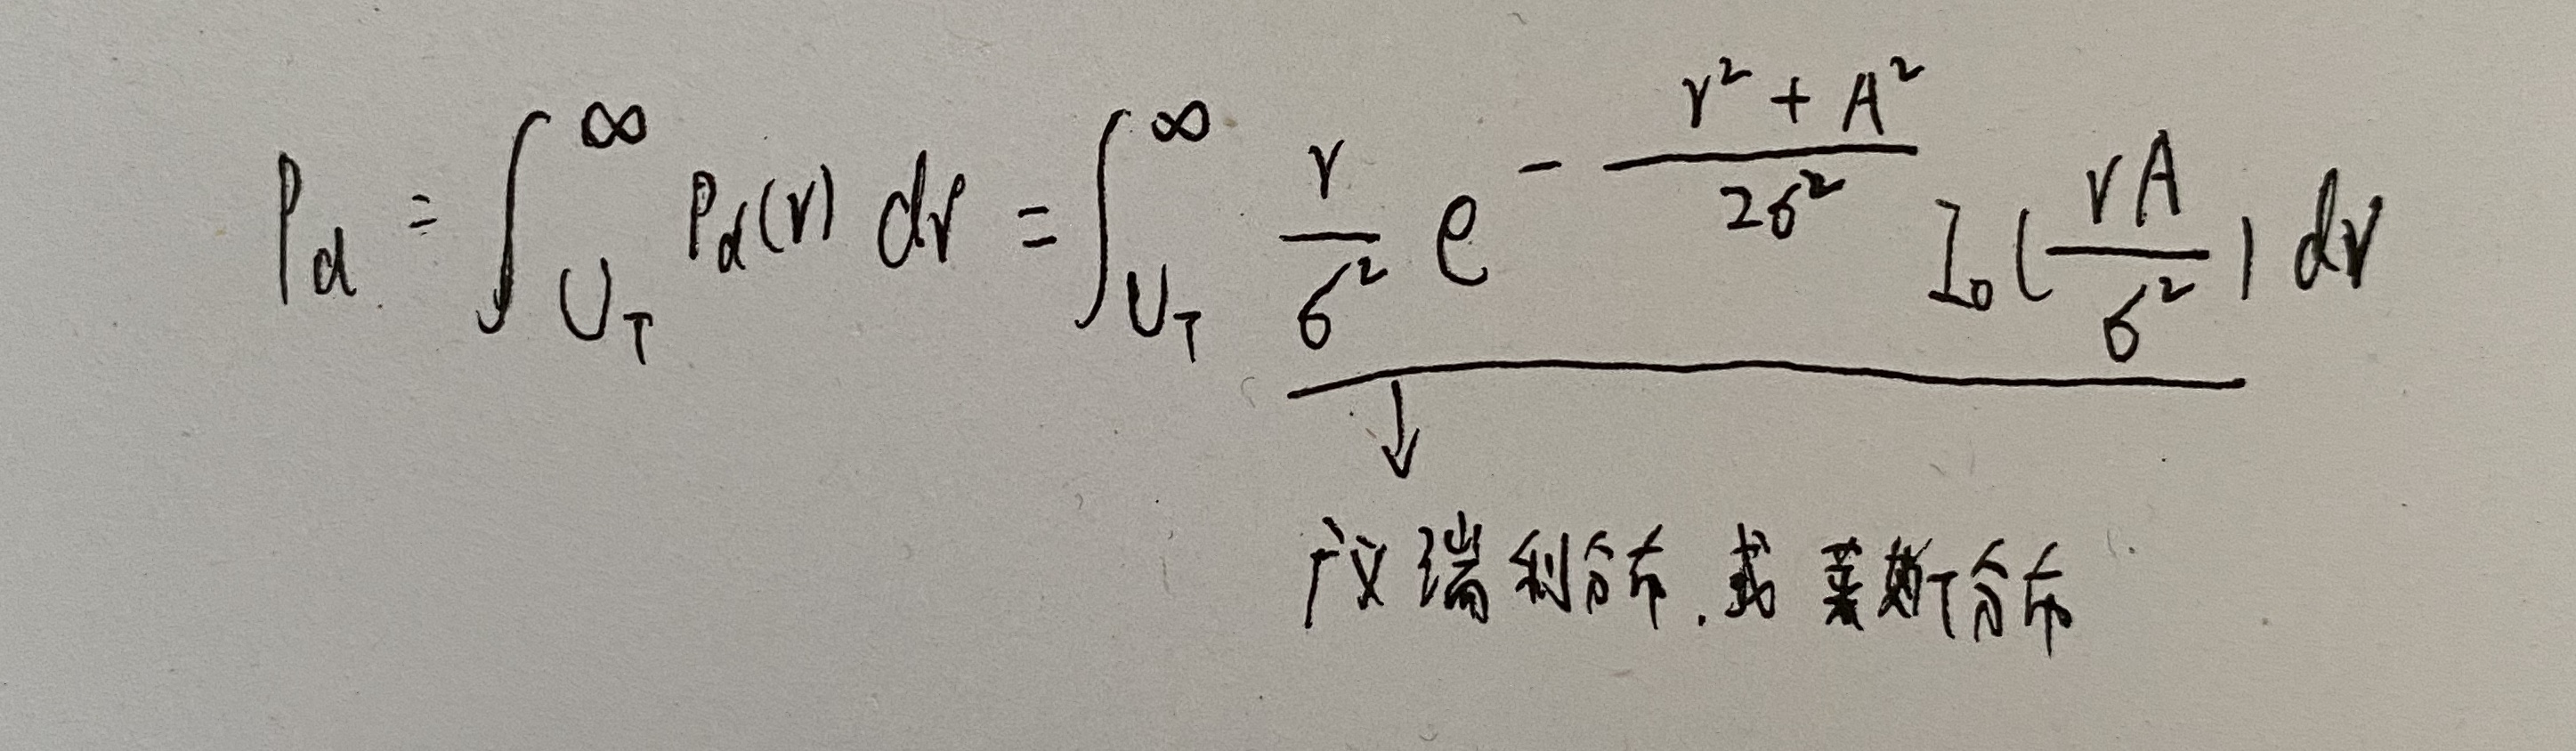 P_d = ∫_{U_T}^{∞} P_d(r) dr = ∫_{U_T}^{∞} \frac{r}{σ^2} e^{-\frac{r^2 + A^2}{2σ^2}} I_0(\frac{rA}{σ^2}) dr
↓
广义瑞利分布.或莱斯分布